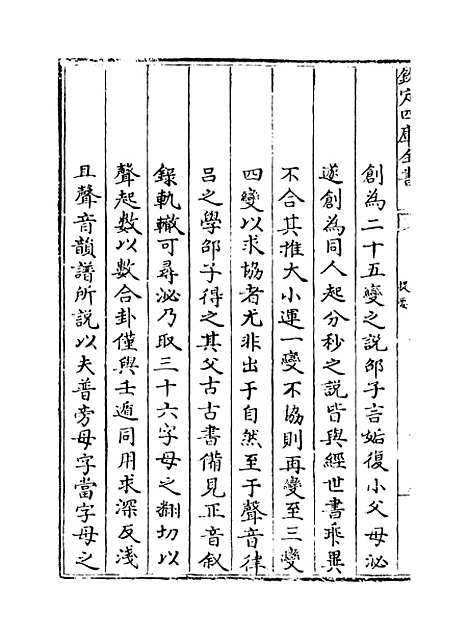 欽定四庫全書
提要
創為二十五變之說邵子言姤復小父母泌
遂創為同人起分秒之說皆與經世書乖異
不合其推大小運一變不協則再變至三變
四變以求協者尤非出于自然至于聲音律
吕之學邵子得之其父古古書備見正音叙
録軌轍可尋泌乃取三十六字母之翻切以
聲起數以數合卦僅與壬遁同用求深反淺
且聲音韻譜所說以夫普旁母字當字母之